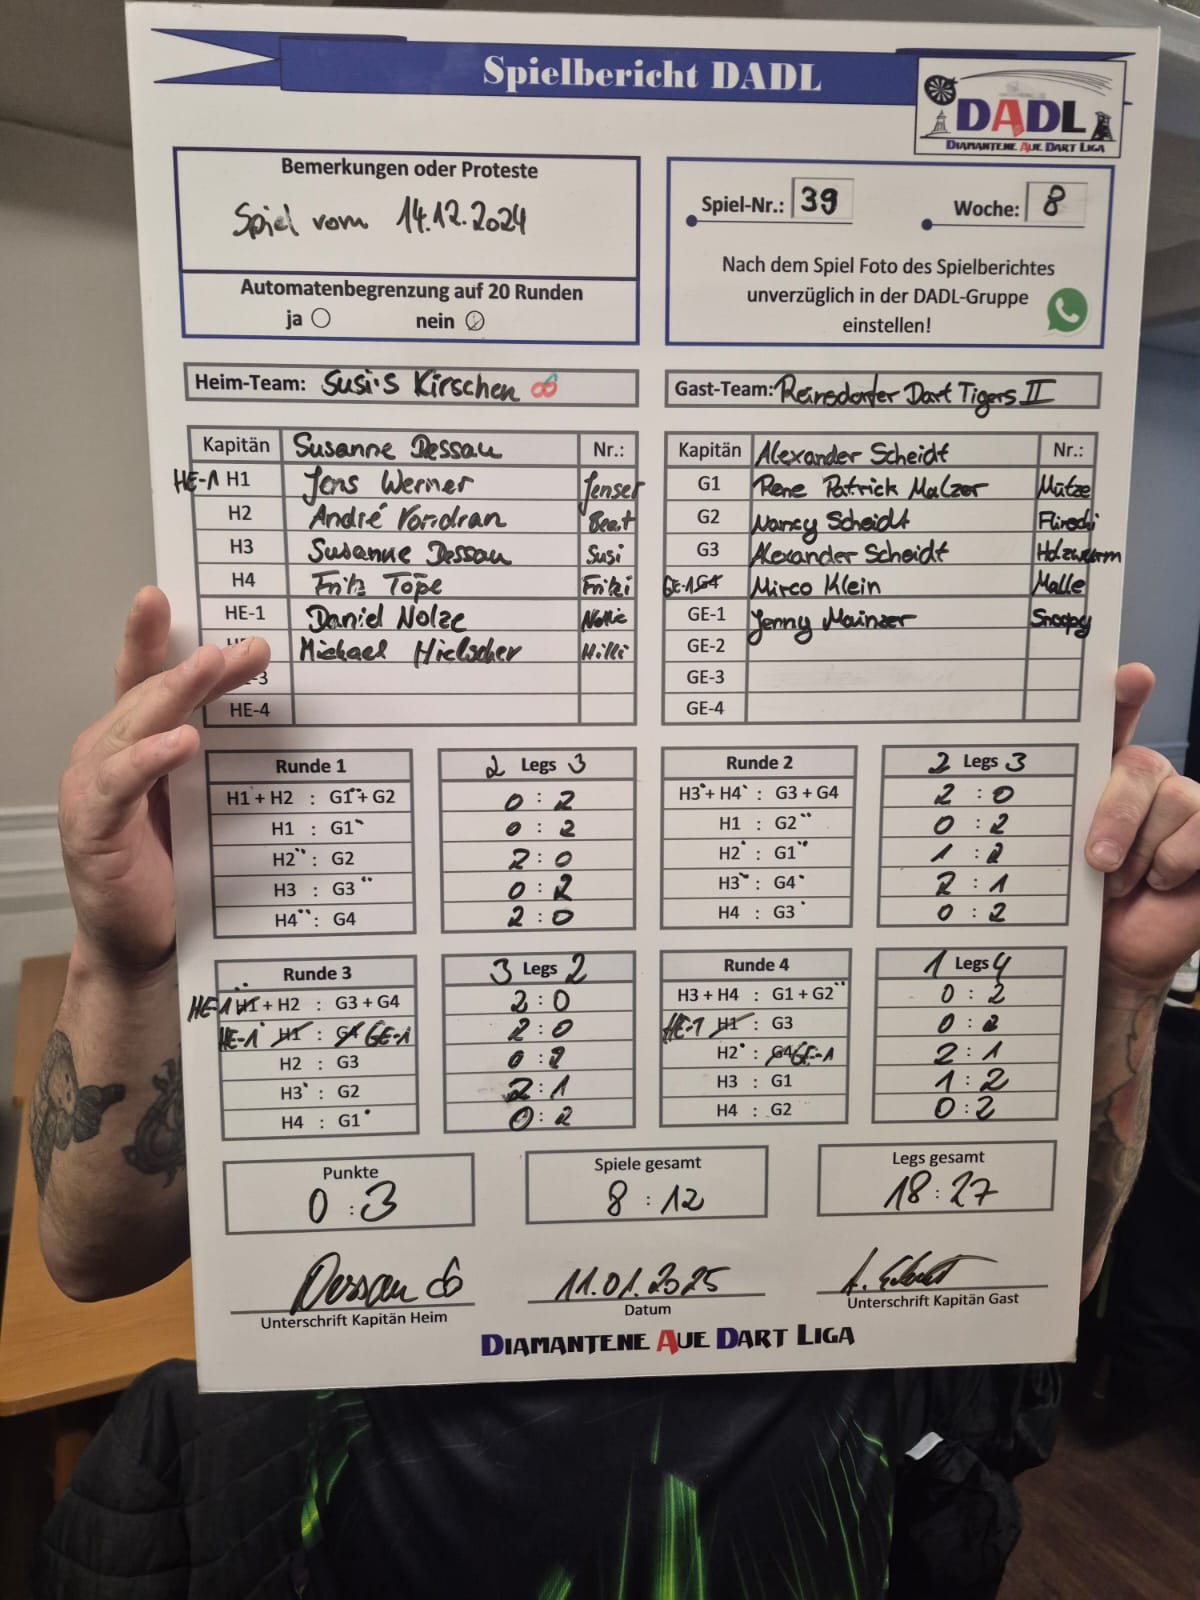 Spielbericht DADL
DADL
DIAMANTENE AUE DART LIGA
Bemerkungen oder Proteste
Spiel vom 14.12.2024
Automatenbegrenzung auf 20 Runden
ja nein
Spiel-Nr.: 39 Woche: 8
Nach dem Spiel Foto des Spielberichtes
unverzüglich in der DADL-Gruppe
einstellen!
Heim-Team: Susi's Kirschen
Gast-Team: Reinsdorfer Dart Tigers II
Kapitän Susanne Dessau Nr.:
HE-1 H1 Jens Werner Jenser
H2 André Vordran Beat
H3 Susanne Dessau Susi
H4 Fritz Töpe Fritzi
HE-1 Daniel Nolze Nolle
Michael Hielscher Hilli
-3
HE-4
Kapitän Alexander Scheidt Nr.:
G1 Rene Patrick Malzer Mütze
G2 Nancy Scheidt
G3 Alexander Scheidt Holzwurm
GE-1 G4 Mirco Klein Malle
GE-1 Jenny Mainzer Snoopy
GE-2
GE-3
GE-4
Runde 1 2 Legs 3
H1 + H2 : G1 + G2 0 : 2
H1 : G1 0 : 2
H2 : G2 2 : 0
H3 : G3 0 : 2
H4 : G4 2 : 0
Runde 2 2 Legs 3
H3 + H4 : G3 + G4 2 : 0
H1 : G2 0 : 2
H2 : G1 1 : 2
H3 : G4 2 : 1
H4 : G3 0 : 2
Runde 3 3 Legs 2
HE-1 H1 + H2 : G3 + G4 2 : 0
HE-1 H1 : G4 GE-1 2 : 0
H2 : G3 0 : 2
H3 : G2 2 : 1
H4 : G1 0 : 2
Runde 4 1 Legs 4
H3 + H4 : G1 + G2 0 : 2
HE-1 H1 : G3 0 : 2
H2 : G4 GE-1 2 : 1
H3 : G1 1 : 2
H4 : G2 0 : 2
Punkte
0 : 3
Spiele gesamt
8 : 12
Legs gesamt
18 : 27
Dessau
Unterschrift Kapitän Heim
11.01.2025
Datum
Unterschrift Kapitän Gast
DIAMANTENE AUE DART LIGA